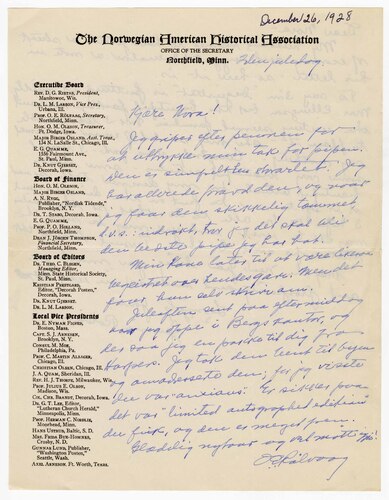 December 26, 1928
The Norwegian American Historical Association
OFFICE OF THE SECRETARY
Northfield, Minn.
Executive Board
REV. D. G. RISTAD, President,
Manitowoc, Wis.
DR. L. M. LARSON, Vice Pres.,
Urbana, Ill.
PROF. O. E. RÖLVAAG, Secretary,
Northfield, Minn.
HON. O. M. OLESON, Treasurer,
Ft. Dodge, Iowa.
MAJOR BIRGER OSLAND, Asst. Treas.,
134 N. LaSalle St., Chicago, Ill.
E. G. QUAMME,
St. Paul, Minn.
DR. KNUT GJERSET,
Decorah, Iowa.
Board of Finance
HON. O. M. OLESON,
MAJOR BIRGER OSLAND,
A. N. RYGG,
Publisher, "Nordisk Tidende",
Brooklyn, N. Y.
DR. T. STABO, Decorah, Iowa.
E. G. QUAMME,
PROF. P. O. HOLLAND,
Northfield, Minn.
DEAN J. JÖRGEN THOMPSON,
Financial Secretary,
Northfield, Minn.
Board of Editors
DR. THEO. C. BLEGEN,
Managing Editor,
Minn. State Historical Society,
St. Paul, Minn.
KRISTIAN PRESTGARD,
Editor, "Decorah Posten,"
Decorah, Iowa.
DR. KNUT GJERSET,
DR. L. M. LARSON.
Local Vice Presidents
Boston, Mass.
CAPT. S. J. ARNESEN,
Brooklyn, N. Y.
Philadelphia, Pa.
PROF. C. MARTIN ALSAGER,
Chicago, Ill.
CHRISTIAN OLSEN, Chicago, Ill.
J. A. QUAM, Sheridan, Ill.
HON. H. J. THORPE, Milwaukee, Wis.
PROF. JULIUS E. OLSON,
Madison, Wis.
COL. CHR. BRANDT, Decorah, Iowa.
DR. G. T. LEE, Editor,
"Lutheran Church Herald,"
Minneapolis, Minn.
PROF. HERMAN C. NORDLIE,
Moorhead, Minn.
HANS USTRUD, Baltic, S. D.
Crosby, N. D.
GUNNAR LUND, Publisher,
"Washington Posten,"
Seattle, Wash.
AXEL ARNESON, Ft. Worth, Texas.
Kjære Nora!
Jeg griper efter pennen for
at uttrykke min tak for pipen.
Den er simpelthen storartet. Jeg
har allerede prøvd den, og naar
jeg faar den skikkelig
tror jeg det skal bli
den beste pipe jeg har hat.
Min Kona later til at være
over hendes gave. Men det
faar hun selv skrive om.
Juleaften sent paa eftermiddag
var jeg oppe i Bergs kontor, og
der saa jeg en pakke til dig fra
Harper. Jeg tok den
og den; for jeg visste
du var anxious. Er sikker paa
det var "limited autographed edition"
du fik, og den er meget
Glædelig nytaar og vel møtt
O E Rölvaag